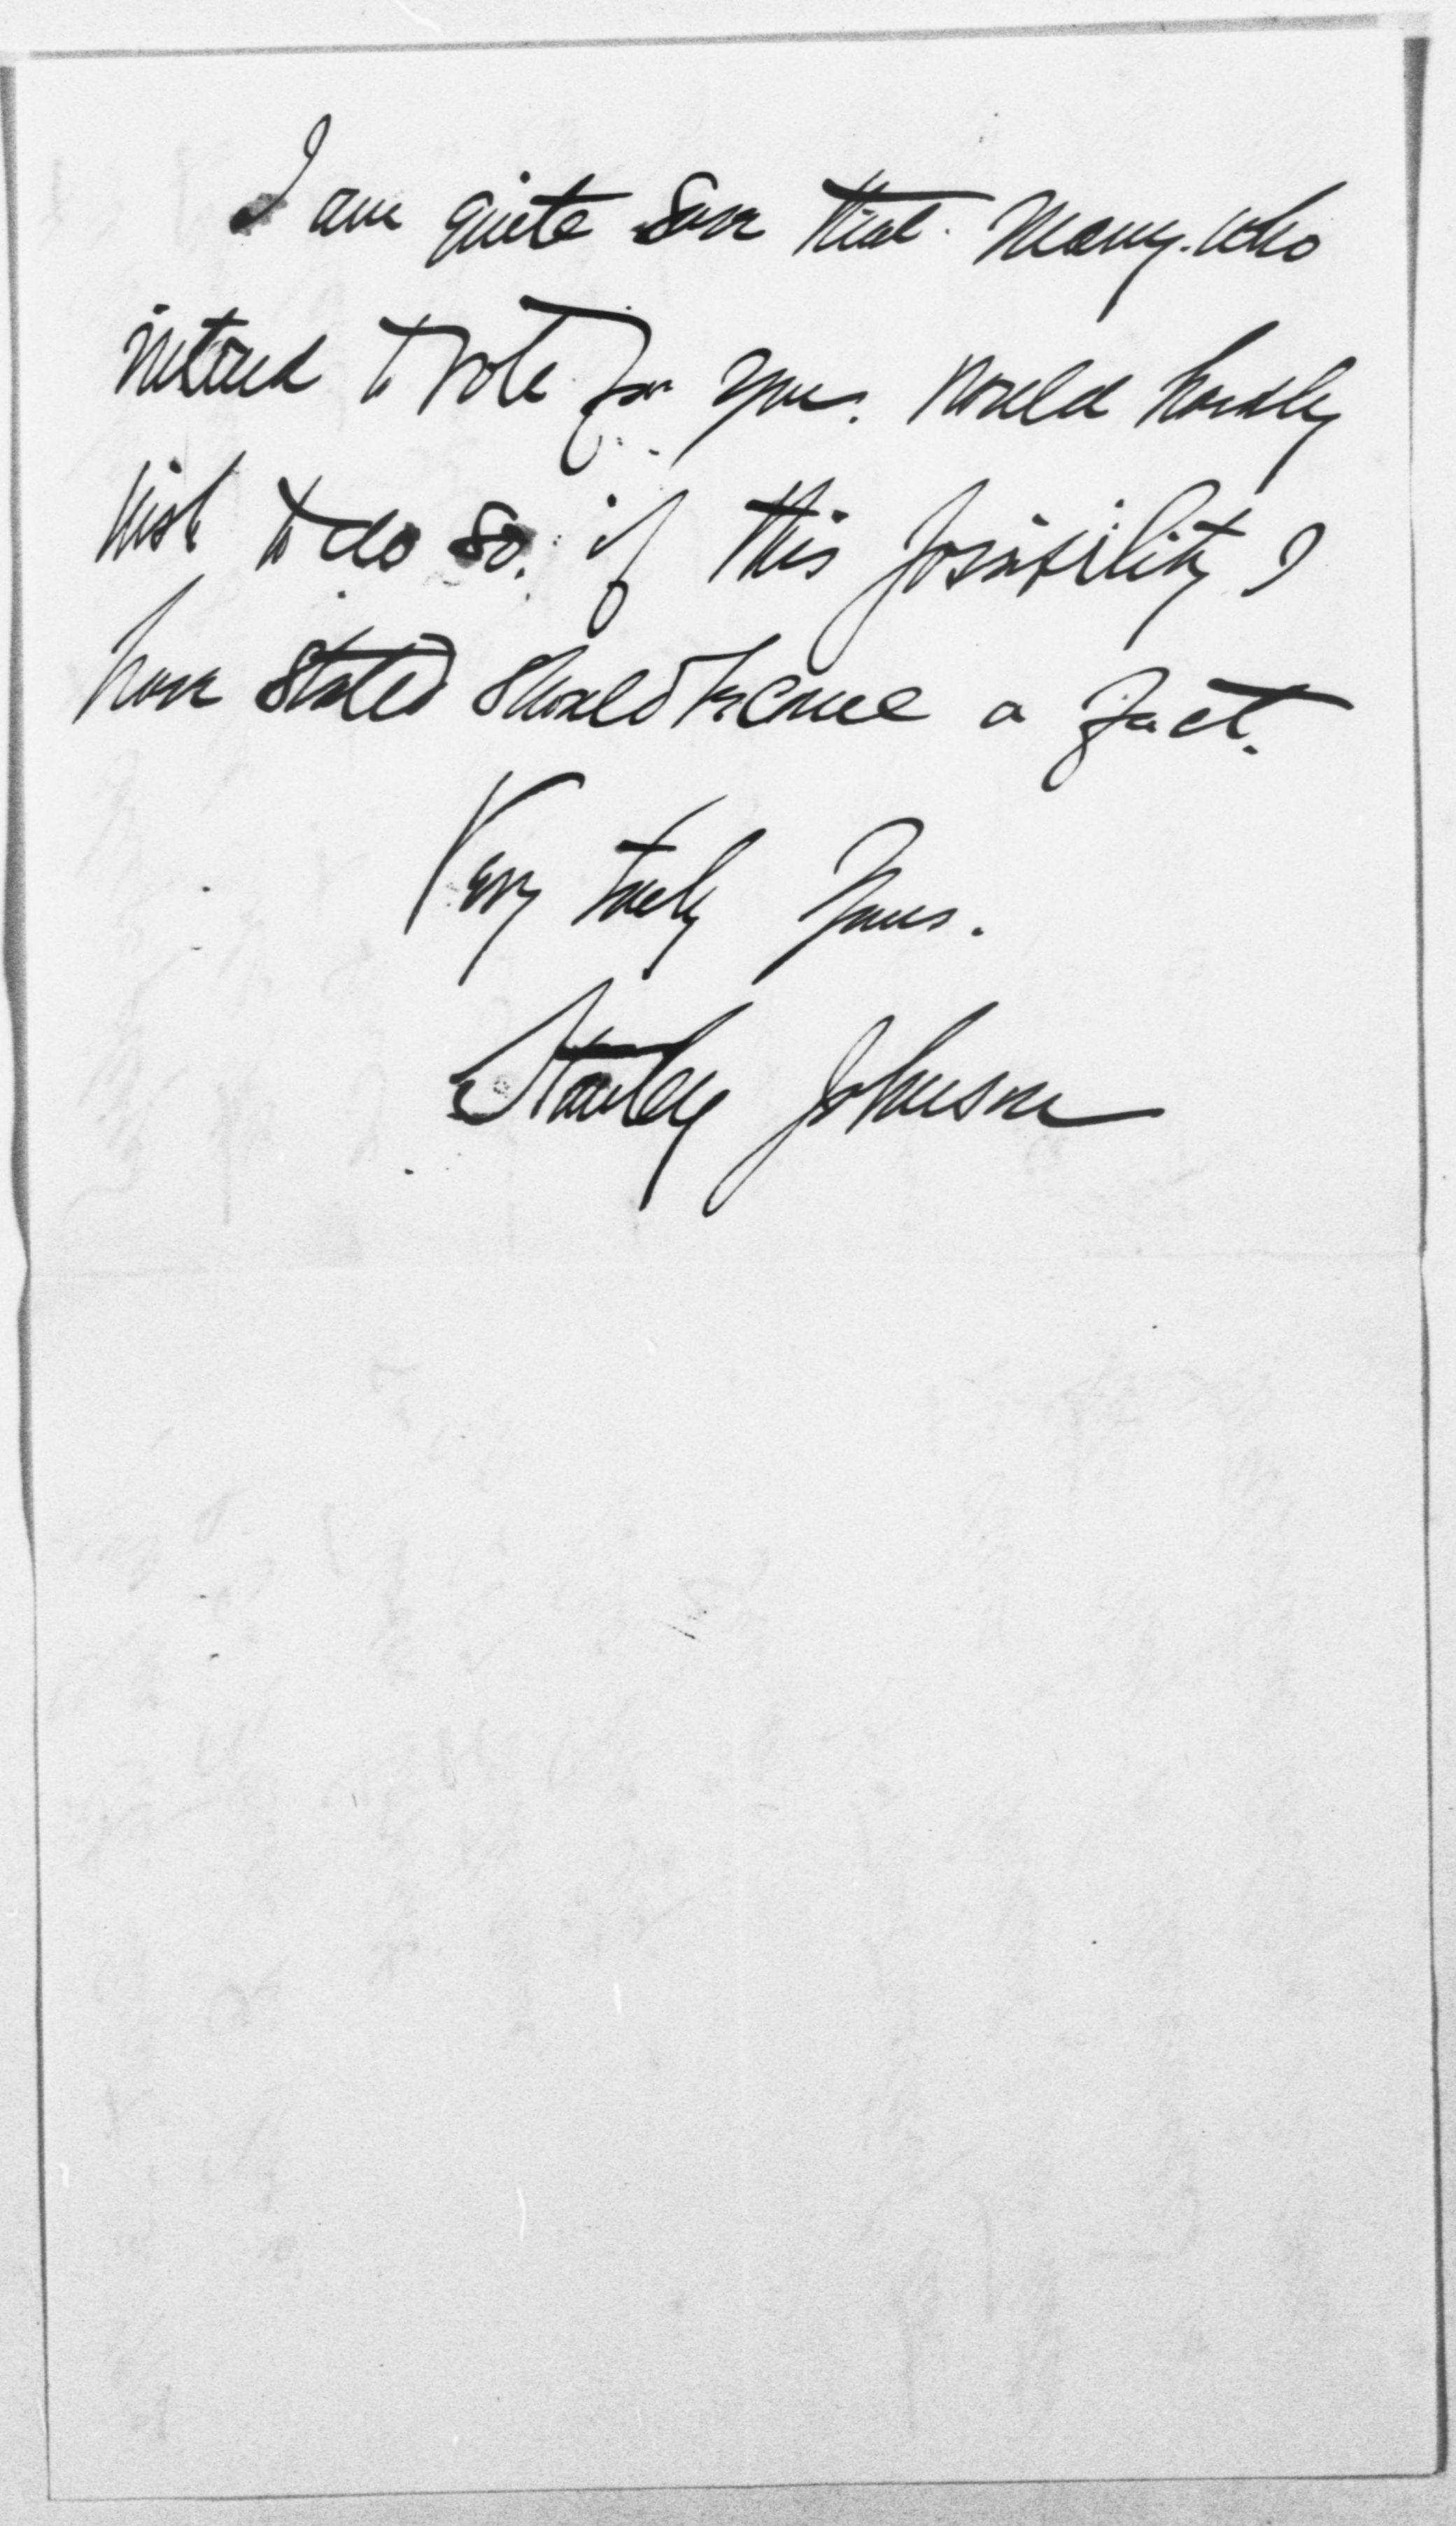 I am quite sure that many who
intend to vote for you. would hardly
wish to do so. if this possibility I
have stated should become a fact.
Very truly Yours.
Stanley Johnson